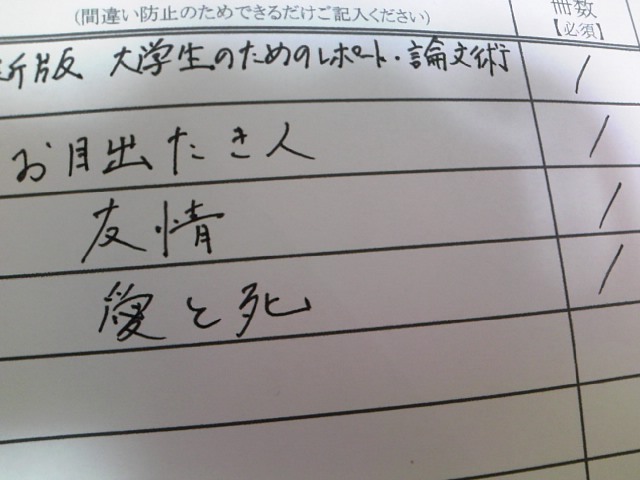 (間違い防止のためできるだけご記入ください)
冊数
【必須】
新版 大学生のためのレポート・論文術 1
お目出たき人 1
友情 1
愛と死 1